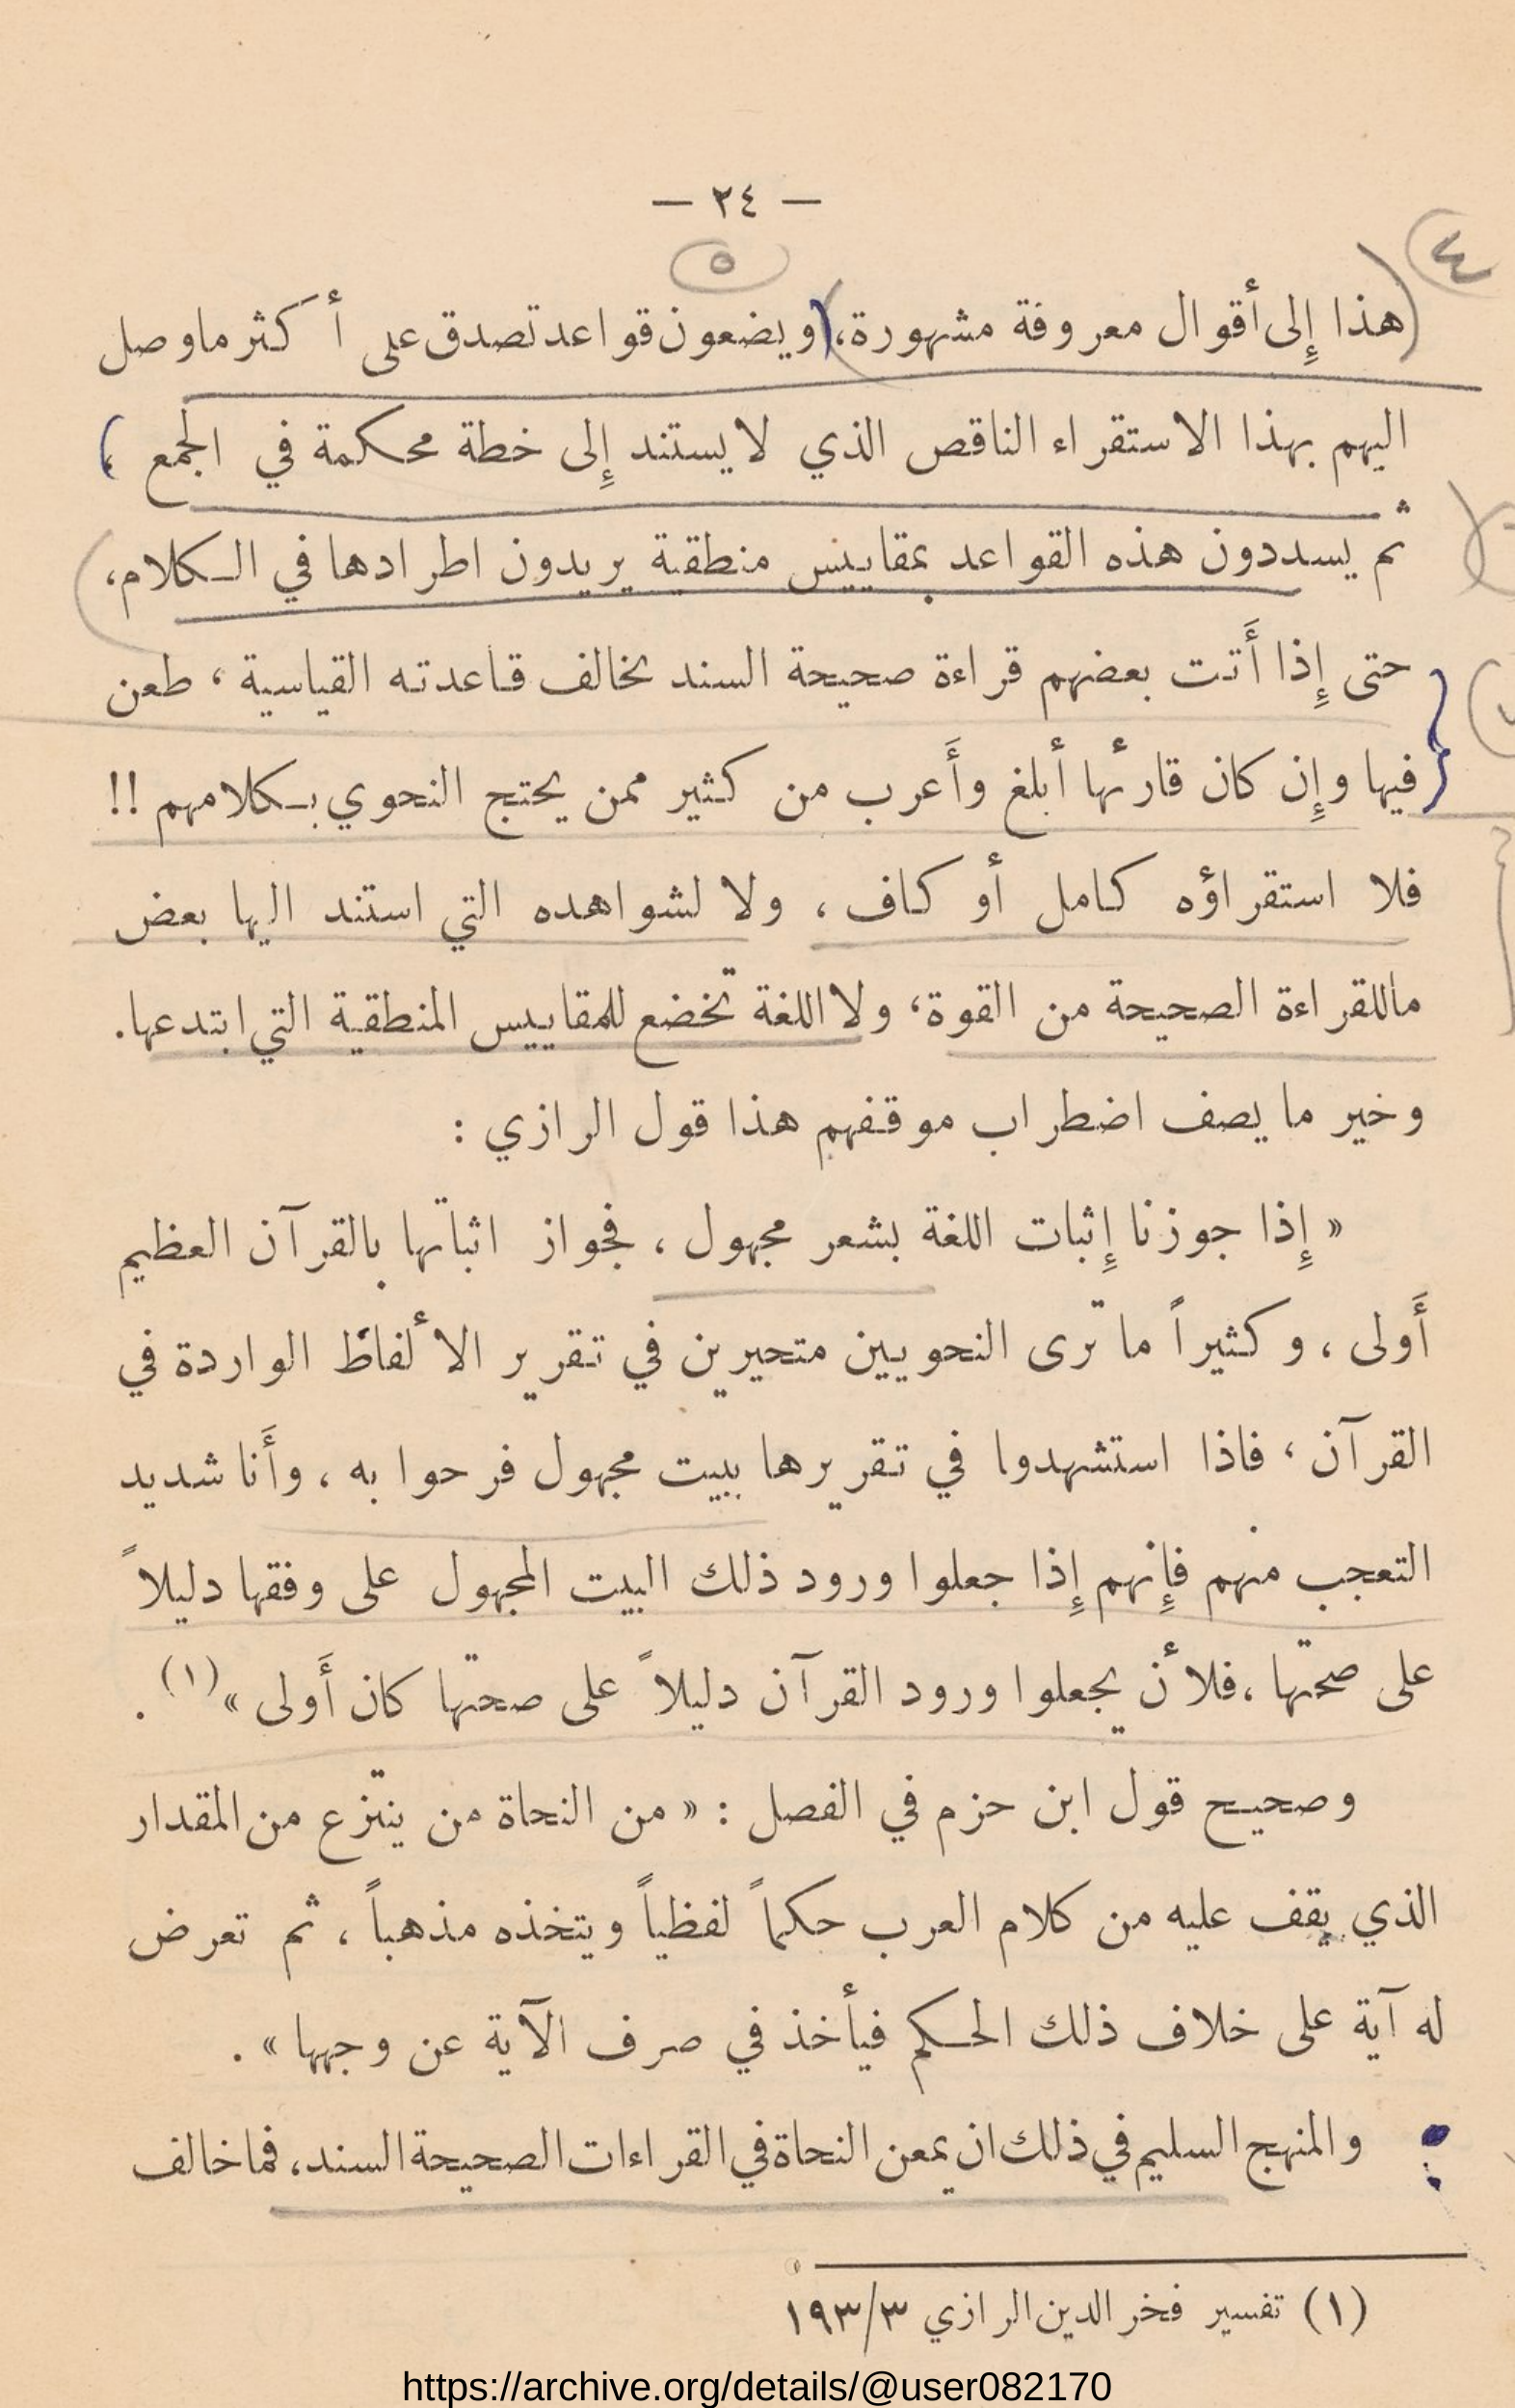 — ٢٤ —
٤
٥
هذا إِلى أقوال معروفة مشهورة، ويضعون قواعد تصدق على أَكثر ماوصل
اليهم بهذا الاستقراء الناقص الذي لايستند إِلى خطة محكمة في الجمع ؛
ثم يسددون هذه القواعد بمقاييس منطقية يريدون اطرادها في الكلام،
حتى إِذا أَتت بعضهم قراءة صحيحة السند تخالف قاعدته القياسية ، طعن
فيها وإِن كان قارئها أبلغ وأَعرب من كثير ممن يحتج النحوي بكلامهم !!
فلا استقراؤه كامل أو كاف ، ولا لشواهده التي استند اليها بعض
ماللقراءة الصحيحة من القوة، ولا اللغة تخضع للمقاييس المنطقية التي ابتدعها.
وخير ما يصف اضطراب موقفهم هذا قول الرازي :
« إِذا جوزنا إِثبات اللغة بشعر مجهول ، فجواز اثباتها بالقرآن العظيم
أَولى ، وكثيراً ما ترى النحويين متحيرين في تقرير الألفاظ الواردة في
القرآن ، فاذا استشهدوا في تقريرها ببيت مجهول فرحوا به ، وأَنا شديد
التعجب منهم فإِنهم إِذا جعلوا ورود ذلك البيت المجهول على وفقها دليلاً
على صحتها ، فلأن يجعلوا ورود القرآن دليلاً على صحتها كان أَولى »(١) .
وصحيح قول ابن حزم في الفصل : « من النحاة من ينتزع من المقدار
الذي يقف عليه من كلام العرب حكماً لفظياً ويتخذه مذهباً ، ثم تعرض
له آية على خلاف ذلك الحكم فيأخذ في صرف الآية عن وجهها » .
والمنهج السليم في ذلك ان يمعن النحاة في القراءات الصحيحة السند، فما خالف
(١) تفسير فخر الدين الرازي ١٩٣/٣
https://archive.org/details/@user082170